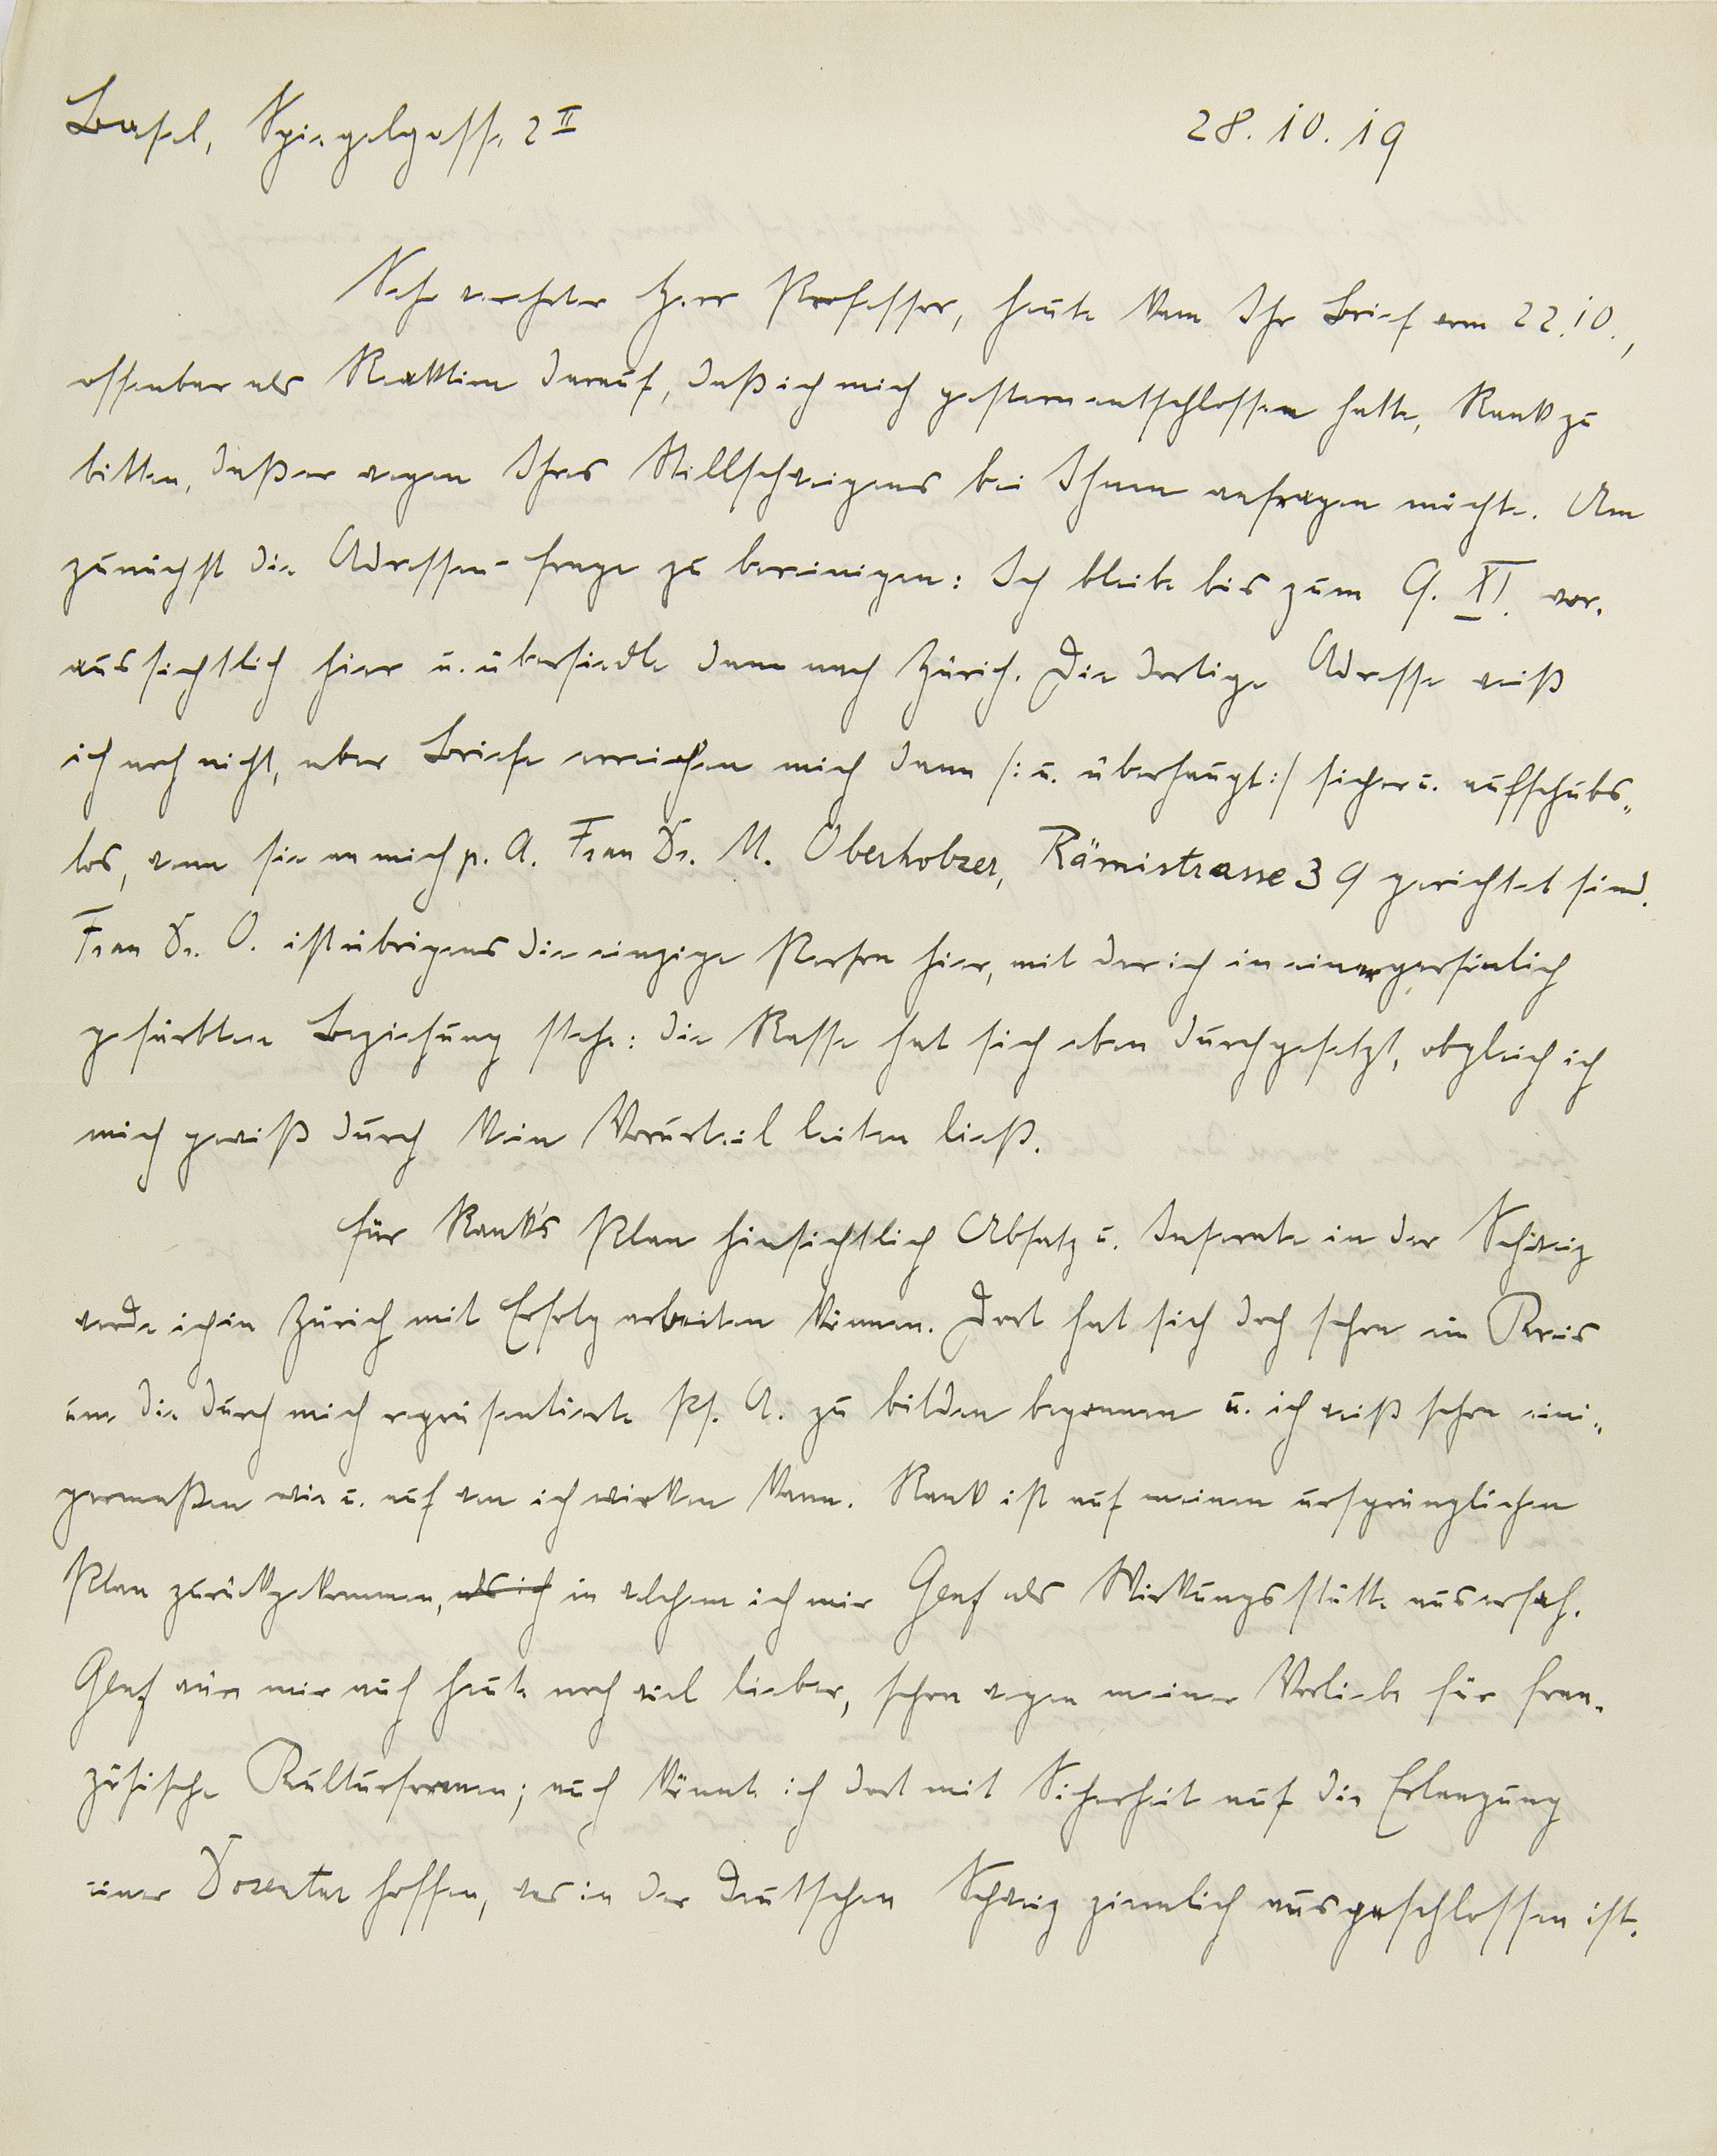 Basel, Spiegelgasse 2 II
28. 10. 19
Sehr verehrter Herr Professor, heute kam Ihr Brief vom 22. 10.,
offenbar als Reaktion darauf, daß ich mich gestern entschlossen hatte, Rank zu
bitten, daß er wegen Ihres Stillschweigens bei Ihnen anfragen möchte. Um
zunächst die Adressen-frage zu bereinigen: Ich bleibe bis zum 9. XI. vor-
aussichtlich hier u. übersiedle dann nach Zürich. Die dortige Adresse weiß
ich noch nicht, aber Briefe erreichen mich dann /: u. überhaupt :/ sicher u. aufschubs-
los, wenn sie an mich p. A. Frau Dr. M. Oberholzer, Rämistrasse 39 gerichtet sind.
Frau Dr. O. ist übrigens die einzige Person hier, mit der ich in einer persönlich
gefärbten Beziehung stehe: die Rasse hat sich eben durchgesetzt, obgleich ich
mich gewiß durch kein Vorurteil leiten ließ.
Für Rank's Plan hinsichtlich Absatz u. Inserate in der Schweiz
werde ich in Zürich mit Erfolg arbeiten können. Dort hat sich doch schon ein Kreis
um die durch mich repräsentierte Ps. A. zu bilden begonnen u. ich weiß schon eini-
germaßen wie u. auf wen ich wirken kann. Rank ist auf meinen ursprünglichen
Plan zurückgekommen, als ich in welchem ich mir Genf als Wirkungsstätte ausersah.
Genf wäre mir auch heute noch viel lieber, schon wegen meiner Vorliebe für fran-
zösische Kulturformen; auch könnte ich dort mit Sicherheit auf die Erlangung
einer Dozentur hoffen, was in der Deutschen Schweiz ziemlich ausgeschlossen ist.